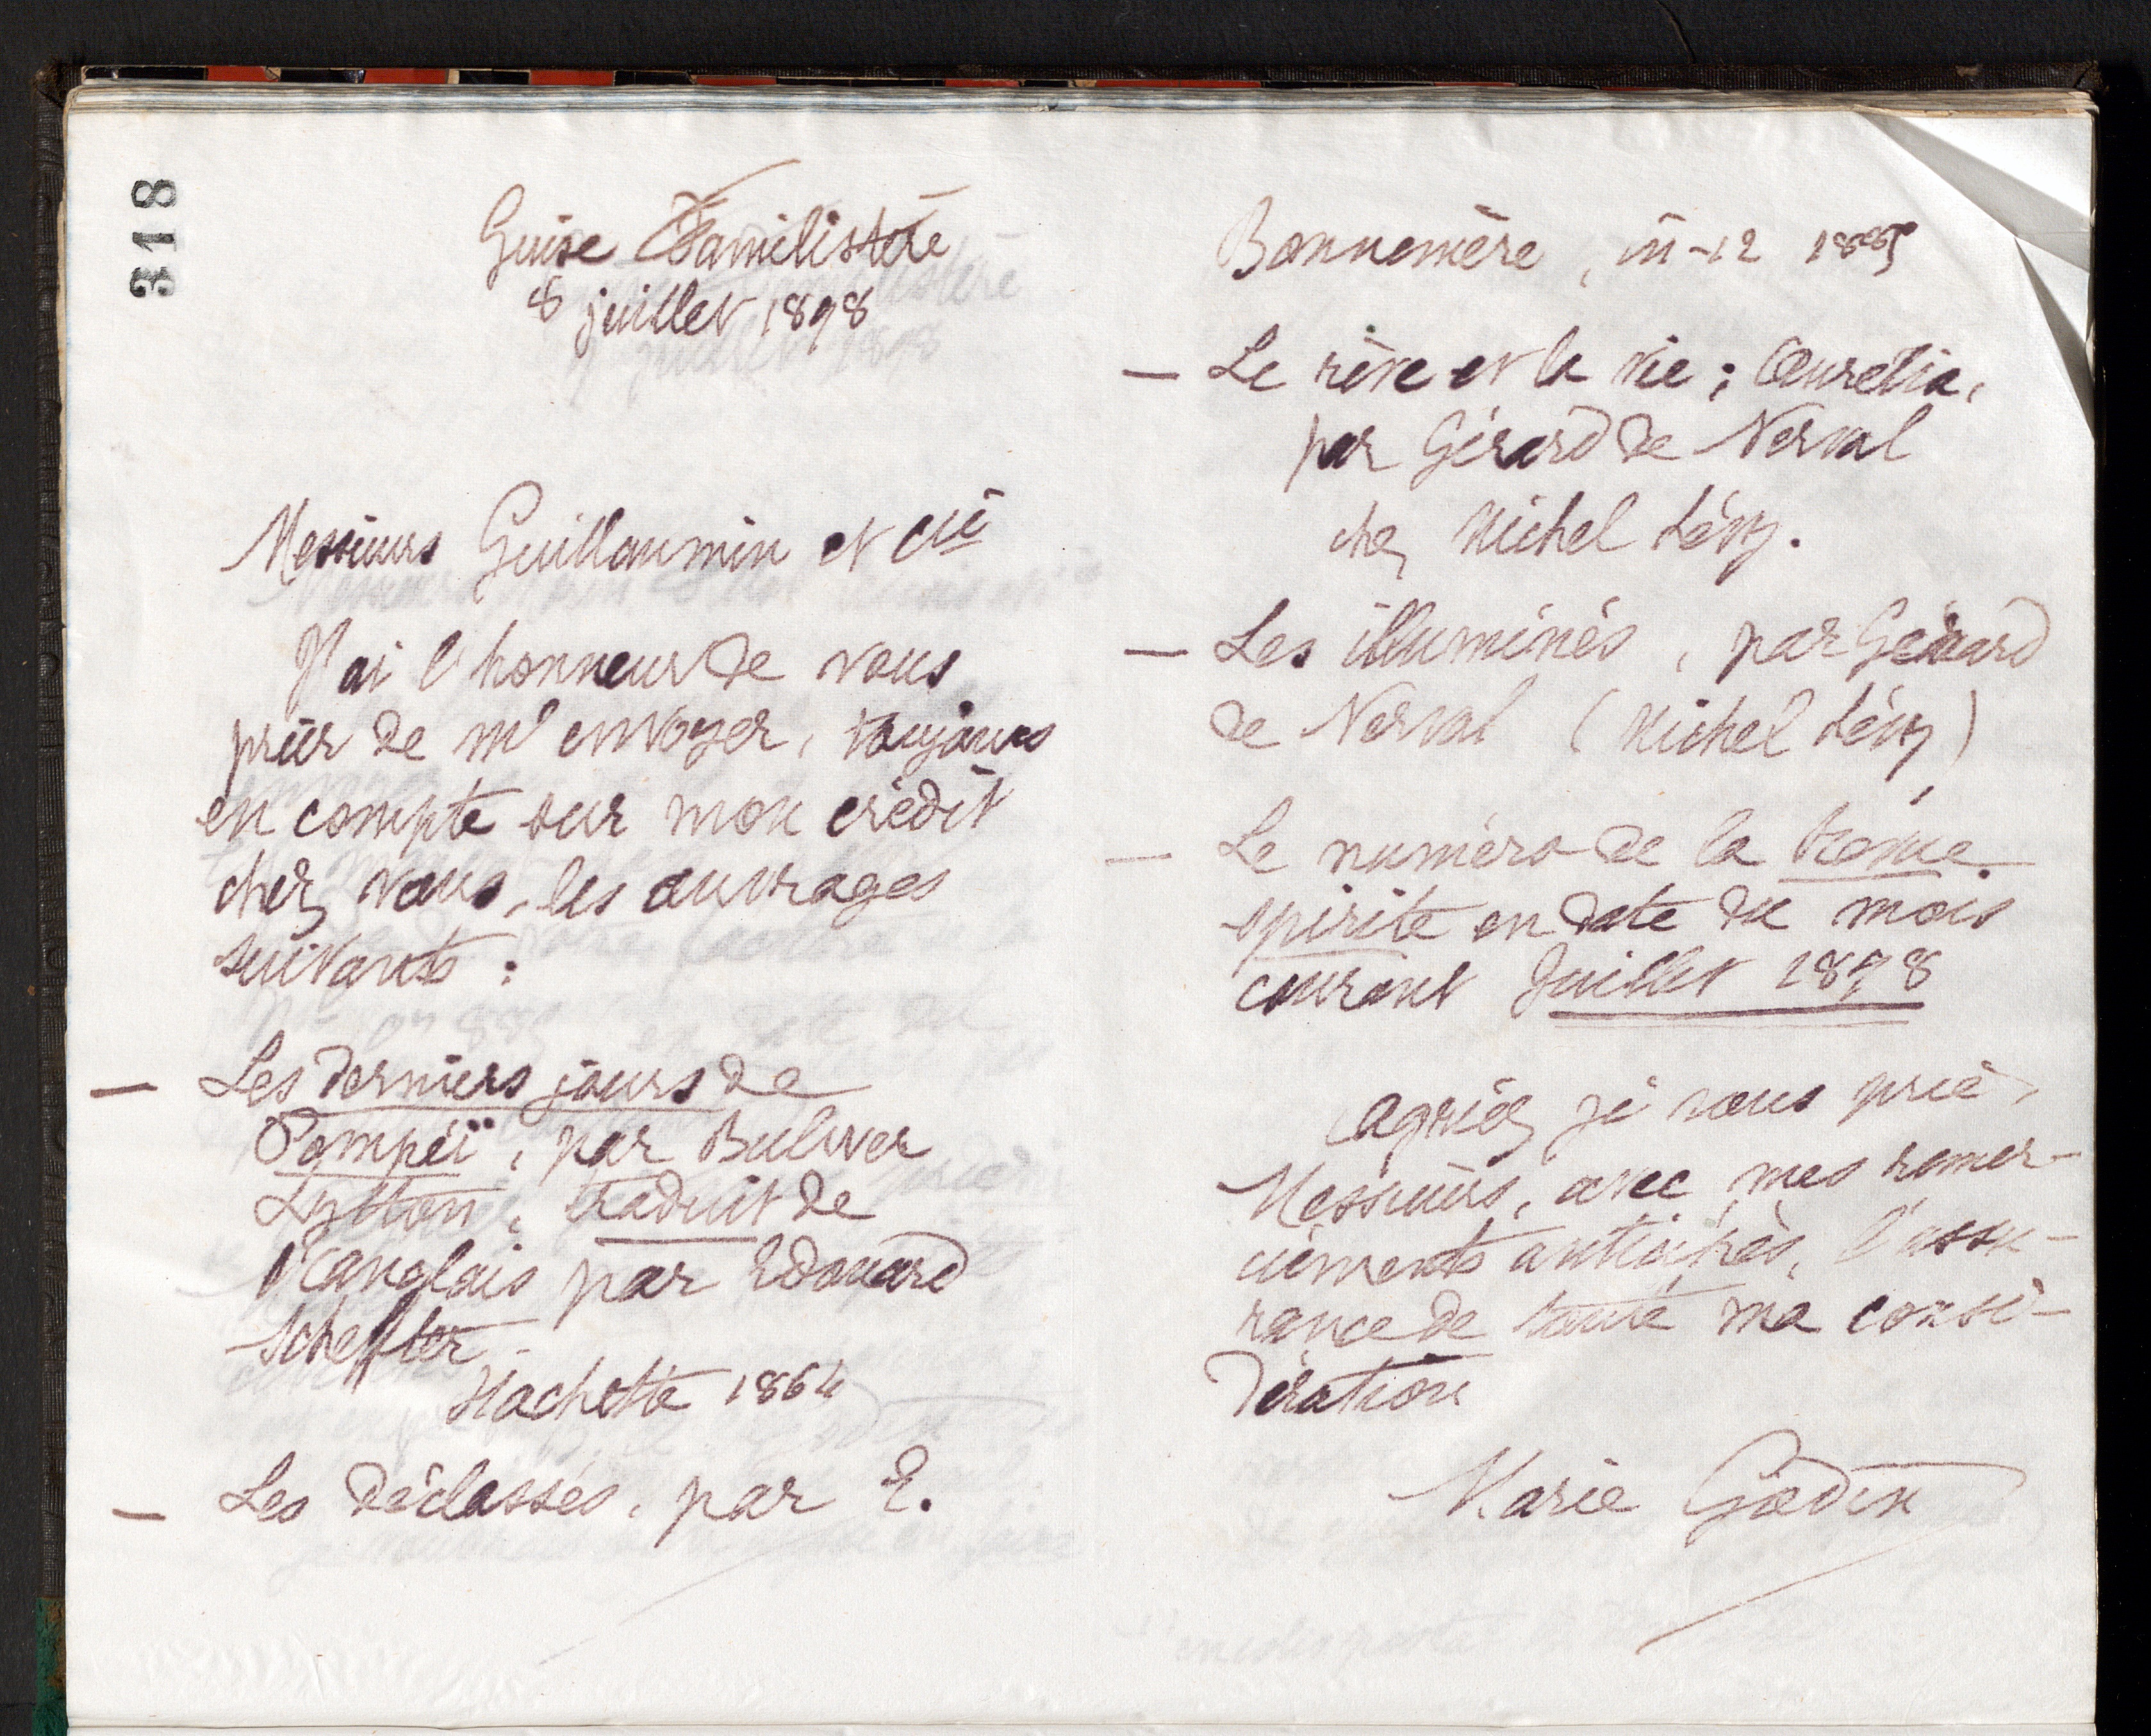 318
Guise Familistère
8 juillet 1898
Messieurs Guillaumin et Cie
J'ai l'honneur de vous
prier de m'envoyer, toujours
en compte sur mon crédit
chez vous, les ouvrages
suivants :
— Les derniers jours de
Pompéï, par Bulwer
Lytton, traduit de
l'anglais par Edouard
Scheffter
Hachette 1864
— Les déclassés, par E.
Bonnemère, in-12
— Le rêve et la vie ; Aurélia,
par Gérard de Nerval
chez Michel Lévy.
— Les illuminés, par Gérard
de Nerval (Michel Lévy)
— Le numéro de la Revue
spirite en date du mois
courant Juillet 1898
Agréez je vous prie,
Messieurs, avec mes remer-
ciements anticipés, l'assu-
rance de toute ma consi-
dération
Marie Godin